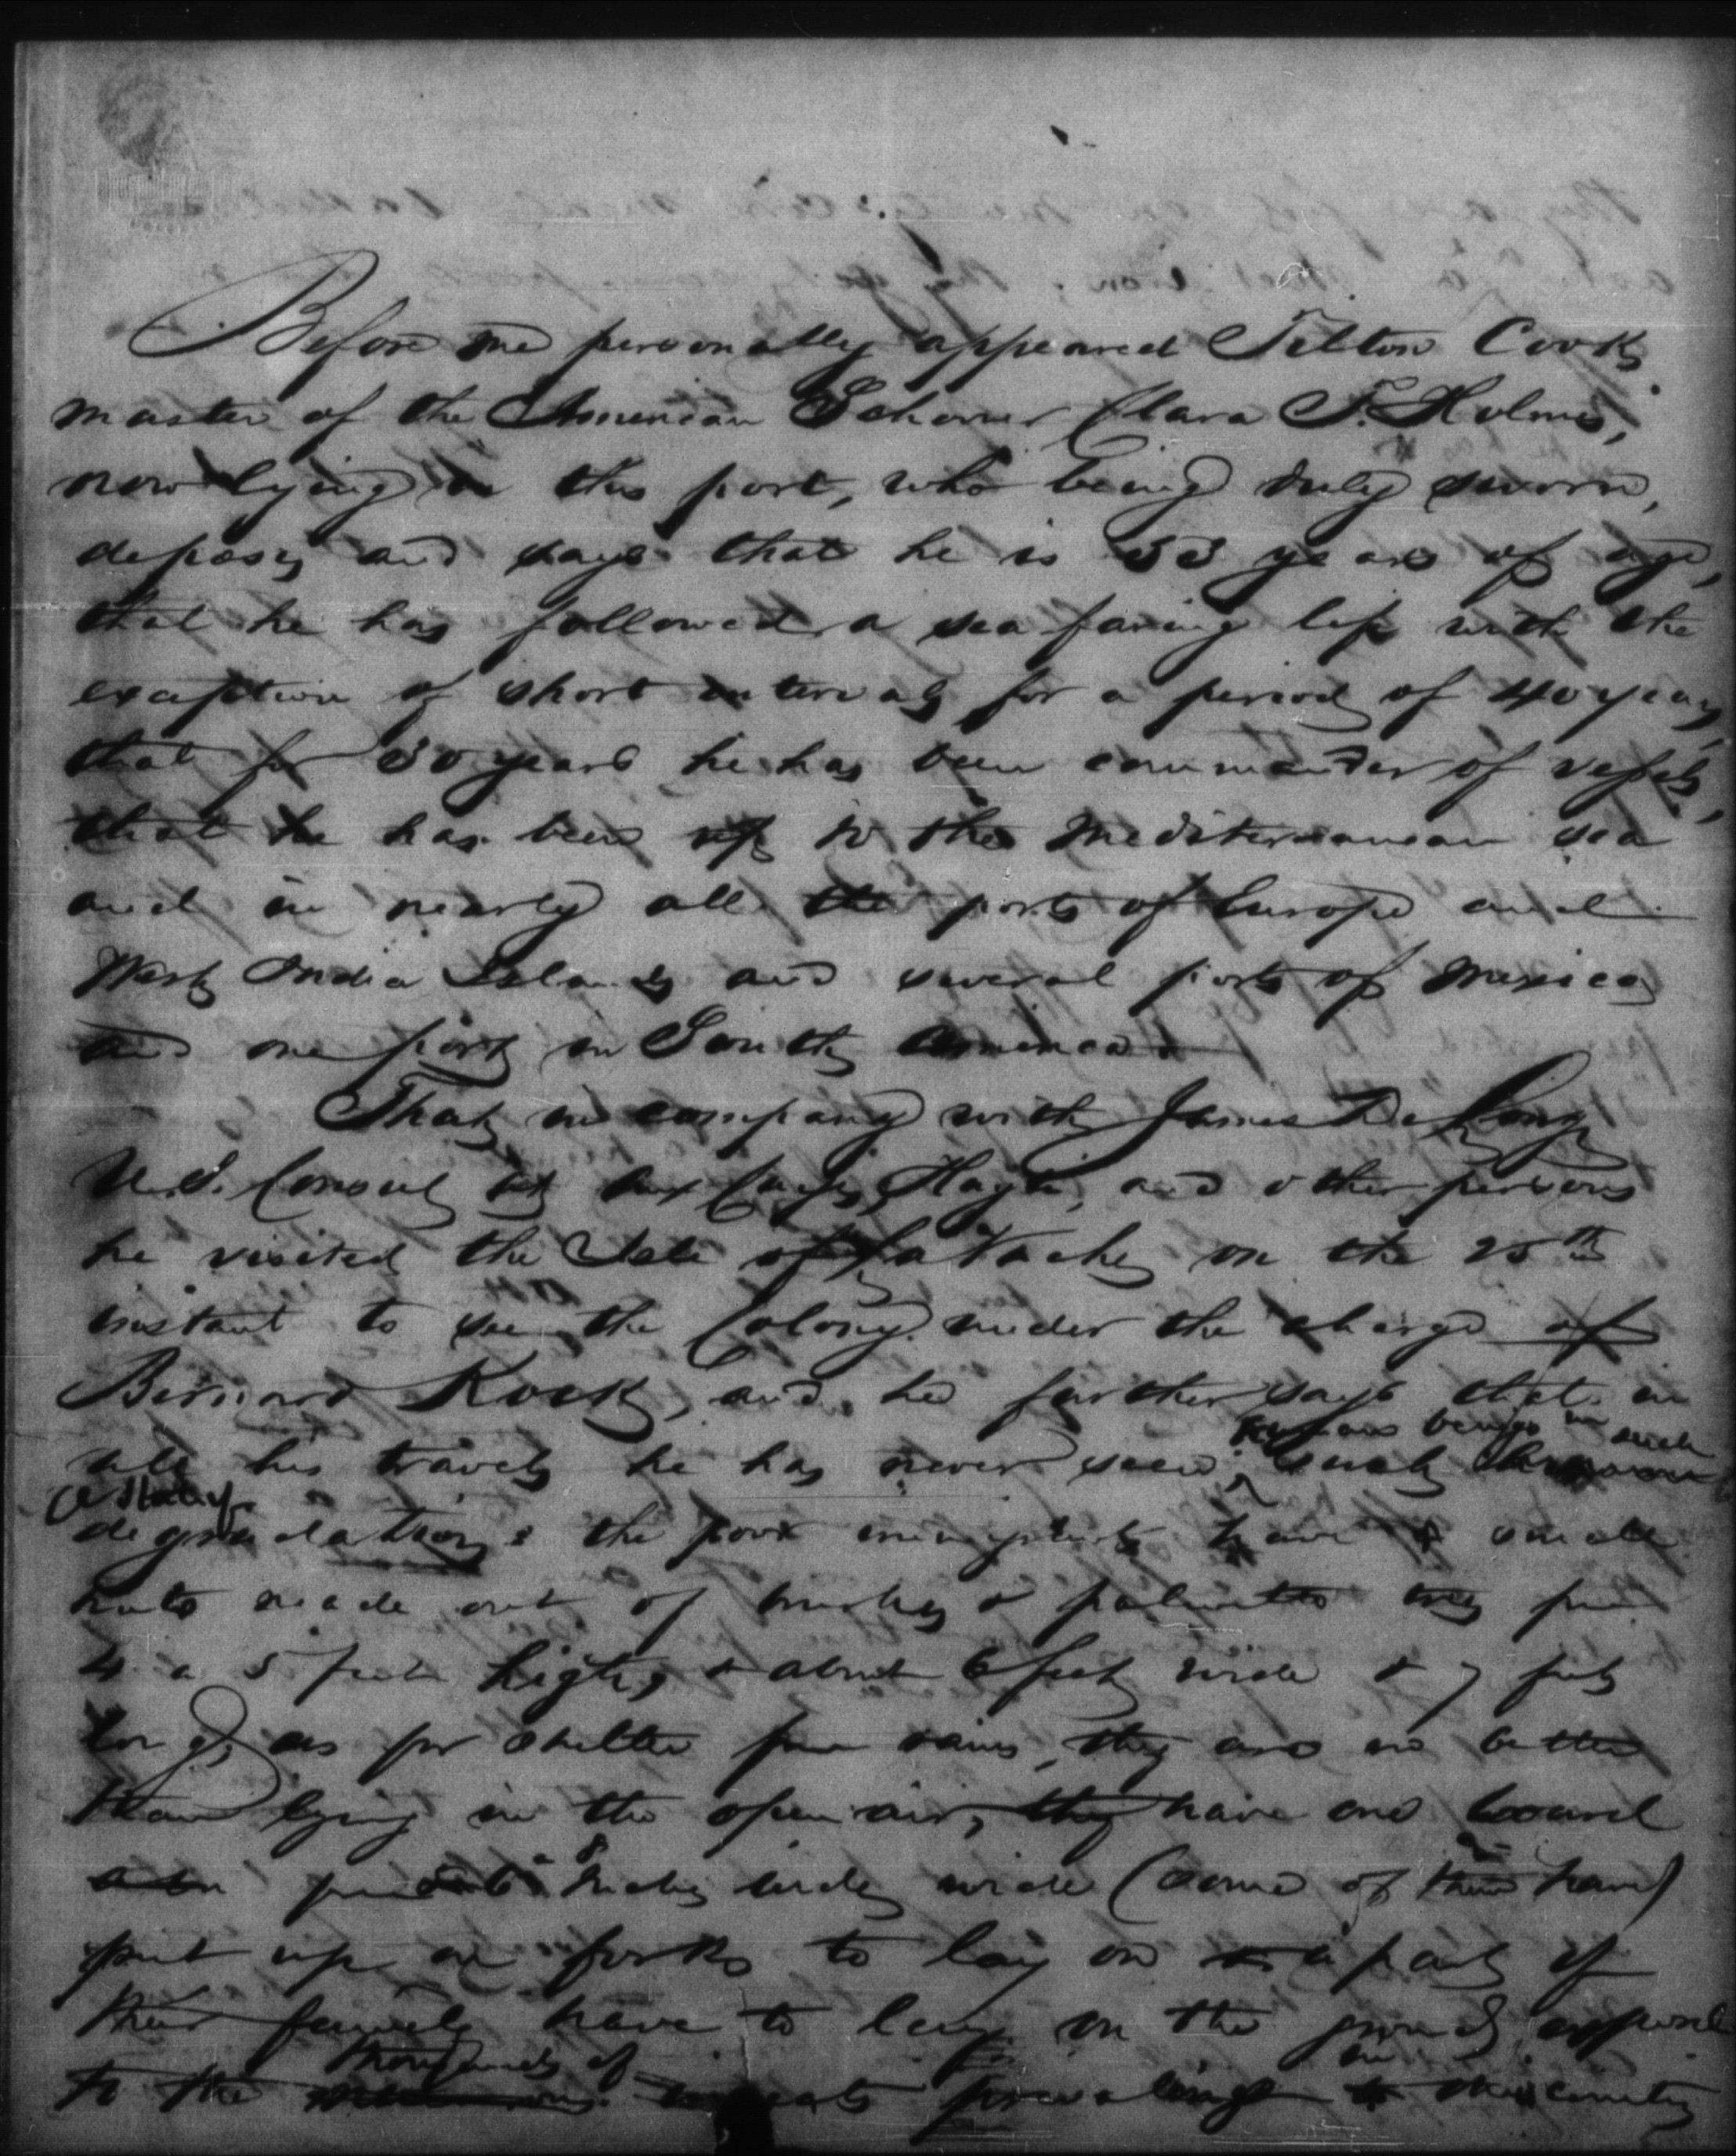 Before me personally appeared Tilton Cook
master of the American Schooner Clara T. Holmes,
now lying in this port, who being duly sworn,
deposes and says that he is 53 years of age,
that he has followed a sea faring life with the
exception of short intervals for a period of 40 years,
that for 30 years he has been commander of vessels,
that he has been up to the Mediterranean sea
and in nearly all the ports of Europe and
West India Islands and several ports of Mexico
and one port in South America.
That in company with James De Long
U.S. Consul at Aux Cayes, Hayti, and other persons
he visited the Isle of La Vache on the 25th
instant to see the Colony under the charge of
Bernard Kock, and he further says that in
all his travels he has never seen human beings in such
a state of
degradation: the poor emigrants have small
huts made out of brushes & palmetto trees from
4 a 5 feet high, & about 6 feet wide & 7 feet
long, as for shelter from rains, they are no better
than lying in the open air, they have one board
from 6 a 8 inches wide (some of them have)
put up on forks to lay on & a part of
their family have to lay on the ground exposed
to the thousands of insects prevailing in this country